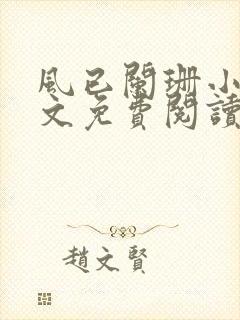 風已闌珊小
文免費閱讀
趙文賢